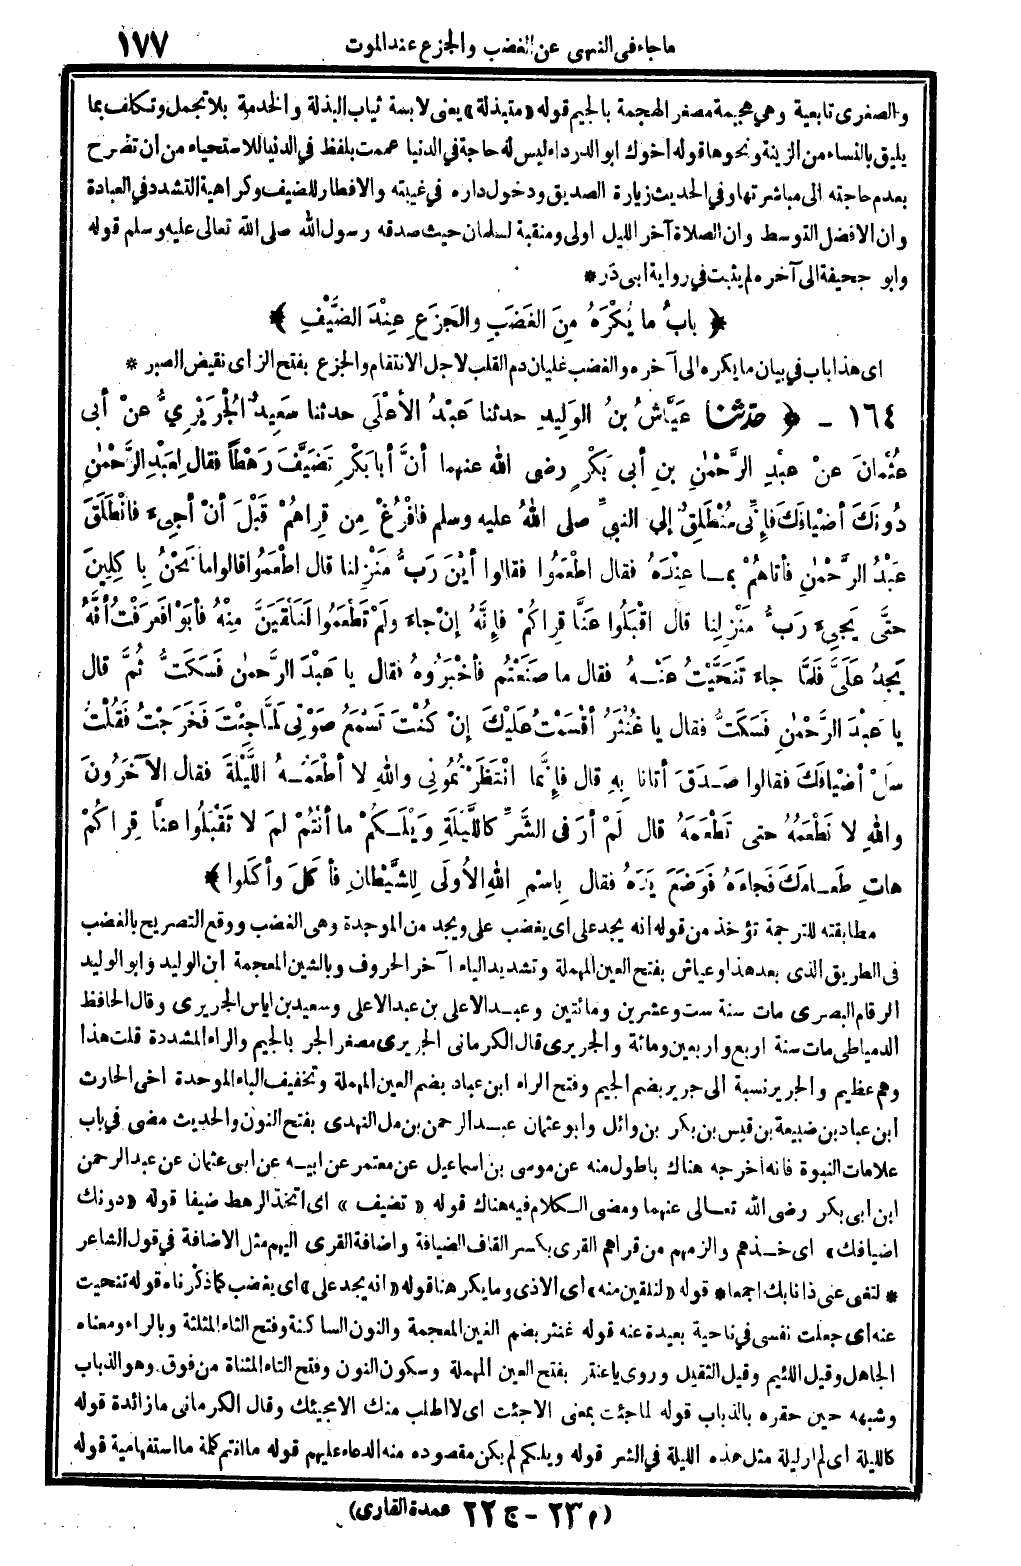 ماجاء فى النهى عن الغضب والجزع عند الموت ١٧٧
والصغرى تابعية وهي هجيمة مصغر الهجمة بالجيم قوله «متبذلة» يعنى لابسة ثياب البذلة والخدمة بلا تجمل وتكلف بما
يليق بالنساء من الزينة ونحوها قوله أخوك ابو الدرداء ليس له حاجة في الدنيا عممت بلفظ في الدنيا للاستحياء من ان تصرح
بعدم حاجته الى مباشرتها وفي الحديث زيارة الصديق ودخول داره في غيبته والافطار للضيف وكراهية التشدد في العبادة
وان الافضل التوسط وان الصلاة آخر الليل اولى ومنقبة لسلمان حيث صدقه رسول الله صلى الله تعالى عليه وسلم قوله
وابو جحيفة الى آخره لم يثبت في رواية ابى ذر *
﴿ بابُ ما يُكْرَهُ مِنَ الغَضَبِ والجَزَعِ عِنْدَ الضَّيْفِ ﴾
اى هذا باب في بيان ما يكره الى آخره والغضب غليان دم القلب لاجل الانتقام والجزع بفتح الزاى نقيض الصبر *
١٦٤ - ﴿ حدّثنا عَيَّاشُ بنُ الوَلِيدِ حدثنا عَبْدُ الأعْلَى حدثنا سَعِيدٌ الجُرَيْرِيُّ عنْ أبى
عُثْمانَ عنْ عبْدِ الرَّحْمٰنِ بنِ أبى بَكْرٍ رضى الله عنهما أنَّ أبا بَكْرٍ تَضَيَّفَ رَهْطاً فقال لِعَبْدِ الرَّحْمٰنِ
دُونَكَ أضْيافَكَ فإنِّى مُنْطَلِقٌ إلى النبيِّ صلى اللهُ عليه وسلم فافْرُغْ مِن قِراهُمْ قَبْلَ أنْ أجِىءَ فانْطَلَقَ
عَبْدُ الرَّحْمٰنِ فأتاهُمْ بمـا عِنْدَهُ فقال اطْعَمُوا فقالوا أيْنَ رَبُّ مَنْزِلنا قال اطْعَمُوا قالوا ما نَحْنُ بآكِلِينَ
حتَّى يَجِىءَ رَبُّ مَنْزِلِنا قال اقْبَلُوا عنَّا قِراكُمْ فإنَّهُ إنْ جاءَ ولَمْ تَطْعَمُوا لَنَلْقَيَنَّ مِنْهُ فأبَوْا فَعَرَفْتُ أنَّهُ
يَجِدُ علَىَّ فَلَمَّا جاءَ تَنَحَّيْتُ عنْـهُ فقال ما صَنَعْتُم فأخْبَرُوهُ فقال يا عبْدَ الرحمٰن فَسَكَتُّ ثُمَّ قال
يا عبْدَ الرَّحْمٰنِ فَسَكَتُّ فقال يا غُنْثَرُ أقْسَمْتُ علَيْكَ إنْ كُنْتَ تَسْمَعُ صَوْتِى لَمَّا جِئْتَ فَخَرَجْتُ فَقُلْتُ
سَلْ أضْيافَكَ فقالوا صَـدَقَ أتانا بِهِ قال فإنَّما انْتَظَرْتُمُونِى والله لا أطْعَمُـهُ اللَّيْلَةَ فقال الآخَرُونَ
واللهِ لا نَطْعَمُهُ حتى تَطْعَمَهُ قال لَمْ أرَ فى الشَّرِّ كاللَّيْلَةِ ويْلَـكُمْ ما أنْتُمْ لِمَ لا تَقْبَلُوا عنا قِراكُمْ
هاتِ طَعـامَكَ فَجاءَهُ فَوَضَعَ يَدَهُ فقال بِاسْمِ اللهِ الأولَى لِلشَّيْطانِ فأكَلَ وأكَلُوا ﴾
مطابقته للترجمة تؤخذ من قوله انه يجد على اى يغضب على ويجد من الموجدة وهى الغضب ووقع التصريح بالغضب
فى الطريق الذى بعد هذا وعياش بفتح العين المهملة وتشديد الياء آخر الحروف وبالشين المعجمة ابن الوليد وابو الوليد
الرقام البصرى مات سنة ست وعشرين ومائتين وعبـد الاعلى بن عبد الاعلى وسعيد بن اياس الجريرى وقال الحافظ
الدمياطى مات سنة اربع واربعين ومائة والجريرى قال الكرمانى الجريرى مصغر الجر بالجيم والراء المشددة قلت هذا
وهم عظيم والجرير نسبة الى جرير بضم الجيم وفتح الراء ابن عباد بضم العين المهملة وتخفيف الباء الموحدة اخى الحارث
ابن عباد بن ضبيعة بن قيس بن بكر بن وائل وابو عثمان عبـد الرحمن بن مل النهدى بفتح النون والحديث مضى في باب
علامات النبوة فانه أخرجه هناك باطول منه عن موسى بن اسماعيل عن معتمر عن ابيـه عن ابى عثمان عن عبد الرحمن
ابن ابى بكر رضى الله تعـالى عنهما ومضى الـكلام فيه هناك قوله « تضيف » اى اتخذ الرهط ضيفا قوله «دونك
اضيافك» اى خـذهم والزمهم من قراهم القرى بكسر القاف الضيافة واضافة القرى اليهم مثل الاضافة في قول الشاعر
* لتغنى عنى ذا انابك اجمعا * قوله «لنلقين منه» اى الاذى وما يكره نا قوله «انه يجد على» اى يغضب كما ذكرناه قوله تنحيت
عنه اى جعلت نفسى فى ناحية بعيدة عنه قوله غنثر بضم الغين المعجمة والنون الساكنة وفتح الثاء المثلثة وبالراء ومعناه
الجاهل وقيل اللئيم وقيل الثقيل وروى يا عنتر بفتح العين المهملة وسكون النون وفتح التاء المثناة من فوق وهو الذباب
وشبهه حين حقره بالذباب قوله لما جئت بمعنى الا جئت اى لا اطلب منك الا مجيئك وقال الكرمانى ما زائدة قوله
كالليلة اى لم ار ليلة مثل هذه الليلة في الشر قوله ويلكم لم يكن مقصوده منه الدعاء عليهم قوله ما انتم كلمة ما استفهامية قوله
(م ٢٣ - ج ٢٢ عمدة القارى)